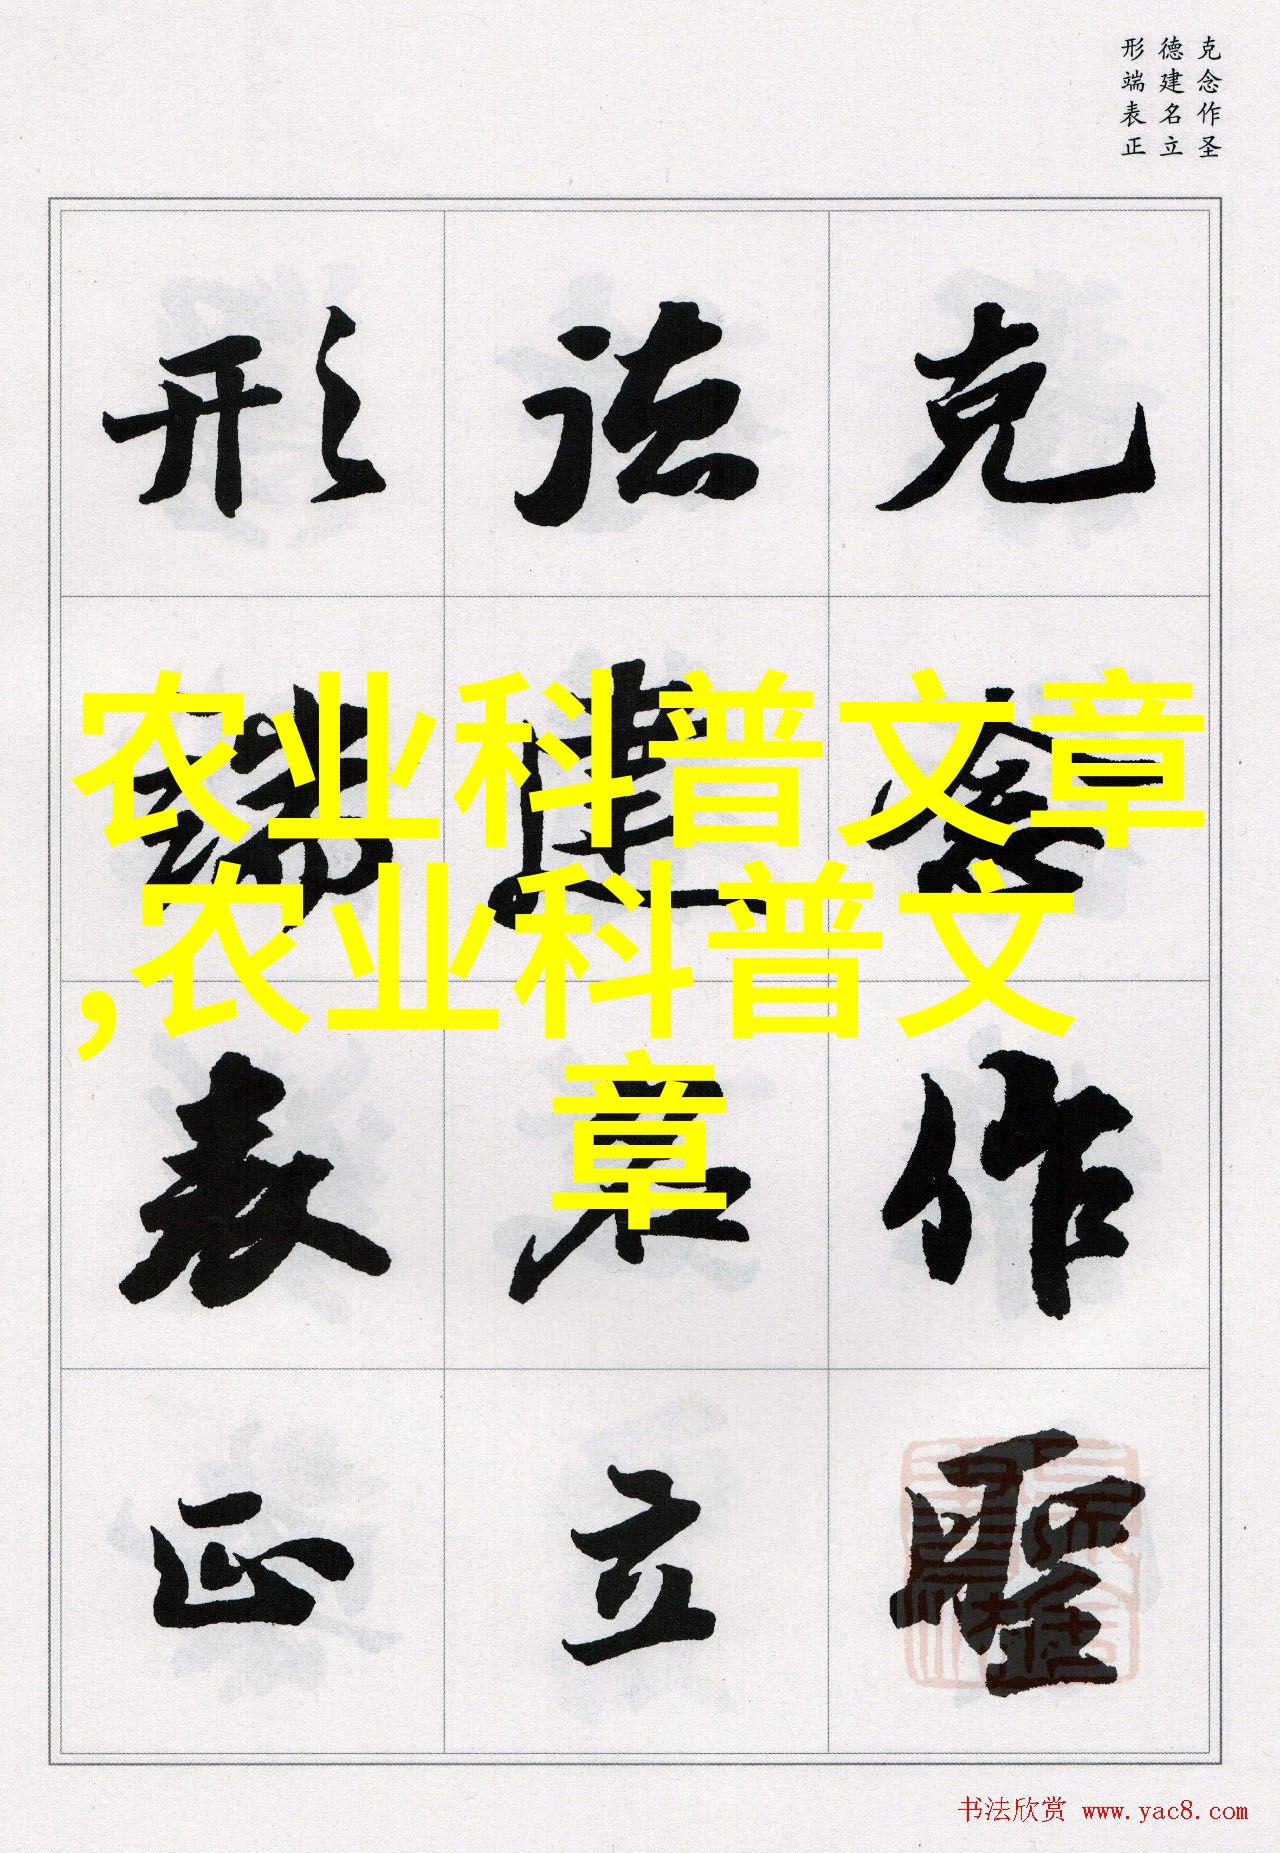 克念作圣
德建名立
形端表正
克念作聖
德建名立
形端表正
农业科普文章
,农业科普文
章
书法欣赏 www.yac8.com